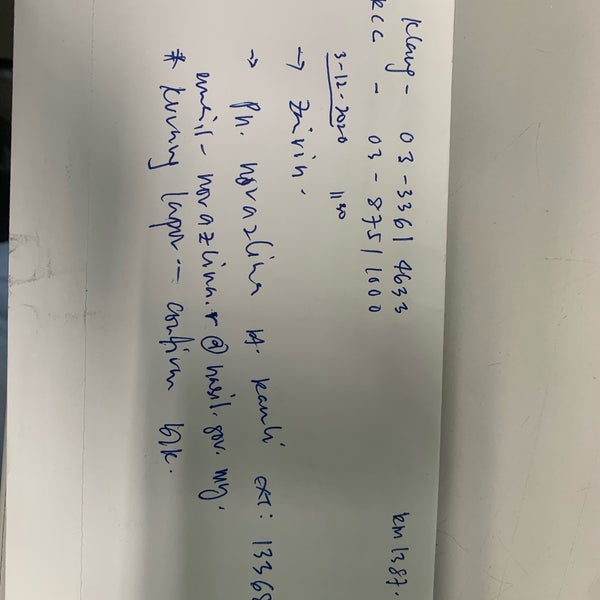 Klang - 03-3361 4633
KCC - 03-8751 1000
3-12-2020 1130
→ Zairin.
→ Pn. Norazlina bt. Ramli ext: 13368
email - norazlina.r@hasil.gov.my.
* kurang lapor - confirm b/k.
km1387.